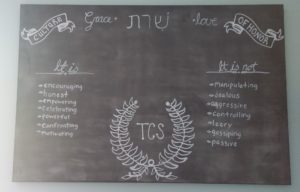 CULTURE Grace • שרת • love OF HONOR
It is
→ encouraging
→ honest
→ empowering
→ celebrating
→ powerful
→ confronting
→ motivating
TCS
It is not
→ manipulating
→ jealous
→ aggressive
→ controlling
→ leery
→ gossiping
→ passive